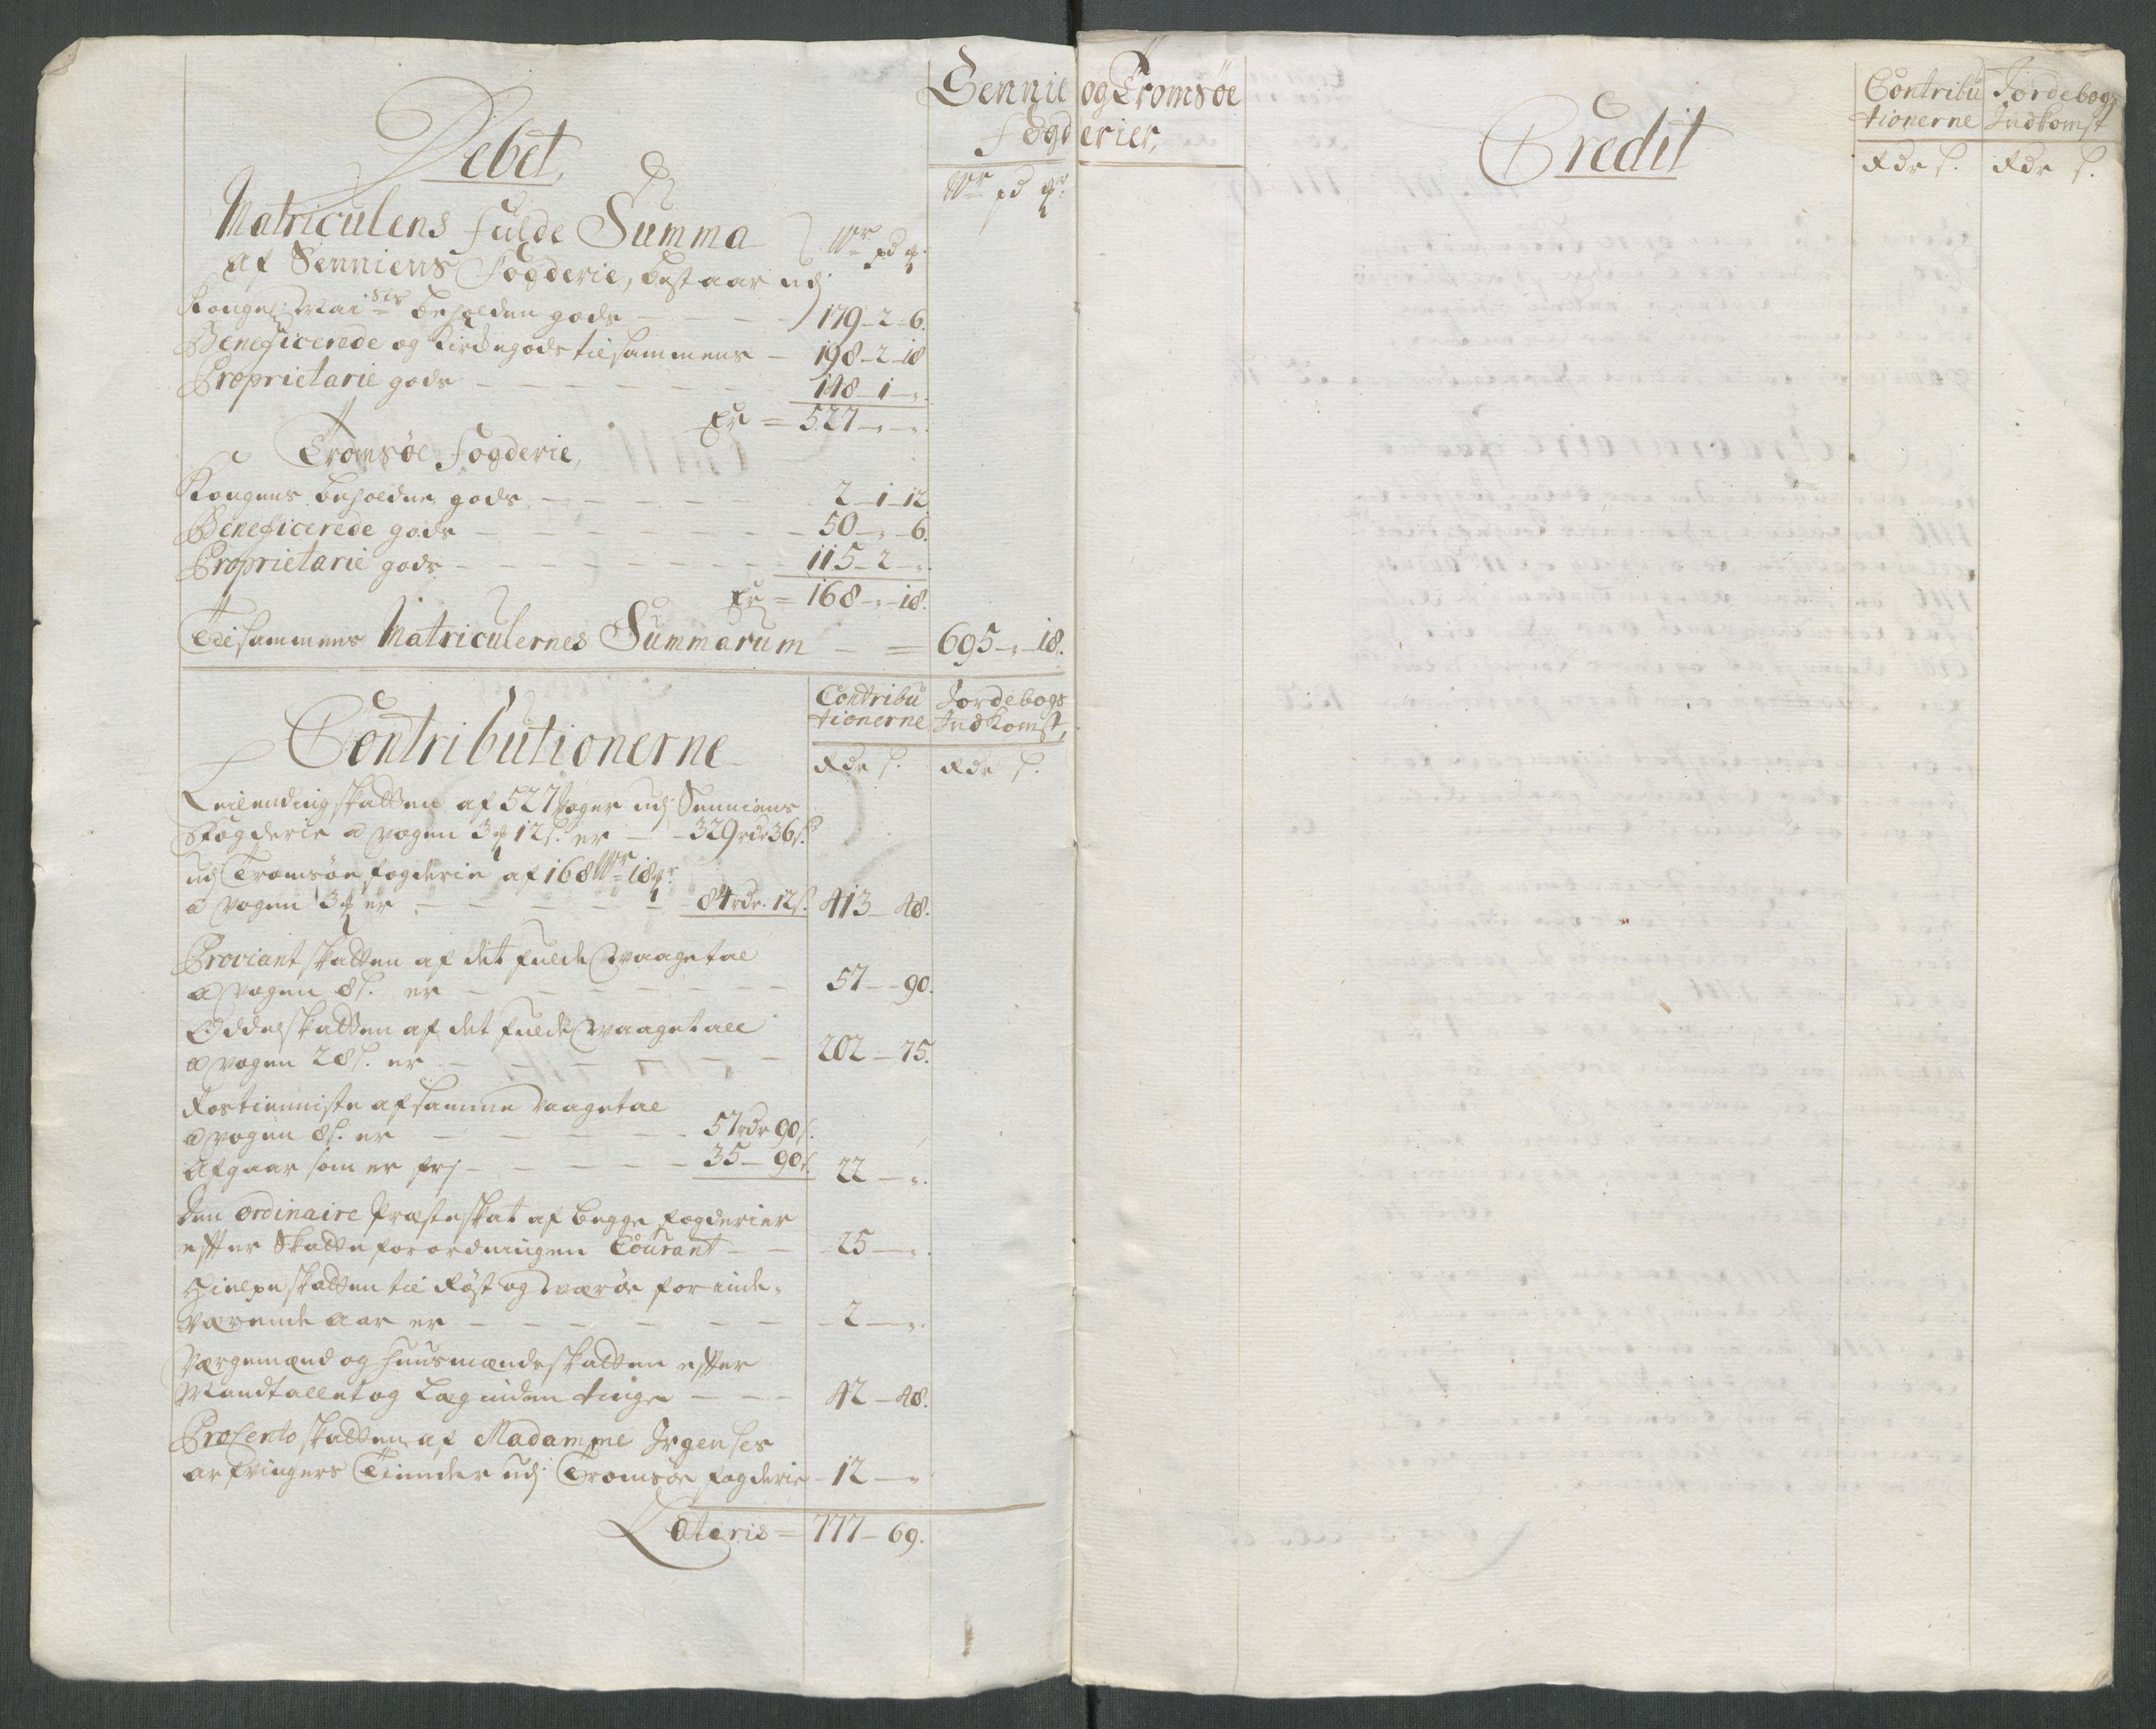 Sennie og Tromsøe
Fogderier,
Debet,
Wr pd
Matriculens fulde Summa
af Senniens Fogderie, bestaar udj Wr pd
Kongel: Maists beholden gods — 179-2-6.
Beneficerede og Kirchegods tilsammens — 198-2-18
Proprietarie gods — 148-1-„.
Er = 527-„-„.
Tromsøe Fogderie,
Kongens beholdne gods — 2-1-12
Beneficerede gods — 50-„-6.
Proprietarie gods — 115-2-„.
Er = 168-„-18.
Tilsammens Matriculernes Summarum — = 695-„-18.
Contribu Jordebogs
tionerne Indkomst,
Contributionerne
Rdr s. Rdr s.
Leilendingskatten af 527 voger udj Senniens
Fogderie a vogen 3 12s. er — 329rdr 36s.
udj Tromsøe fogderie af 168Wr 18
a vogen 3 er — 84rdr. 12s. 413-48.
Proviantskatten af det fulde Waagetal
a vogen 8s. er — 57-90.
Oddelskatten af det fulde Waagetall
a vogen 28s. er — 202-75.
Rostienniste af samme Waagetal
a vogen 8s. er — 57rdr 90s.
Afgaar som er frj — 35-90s. 22-„.
Den ordinaire Præsteskat af begge fogderier
effter Skatteforordningen Courant — 25-„.
Hielpeskatten til Røst og Værøe for inde-
værende Aar er — 2-„.
Værgemænd og Huusmændskatten effter
Mandtallet og Læg inden tinge — 42-48.
ProCento skatten af Madamme Irgenses
arfvingers Tiender udj Tromsøe fogderie 12-„
Lateris = 777-69.
Credit
Contribu Jordebogs
tionerne Indkomst
Rdr s. Rdr s.